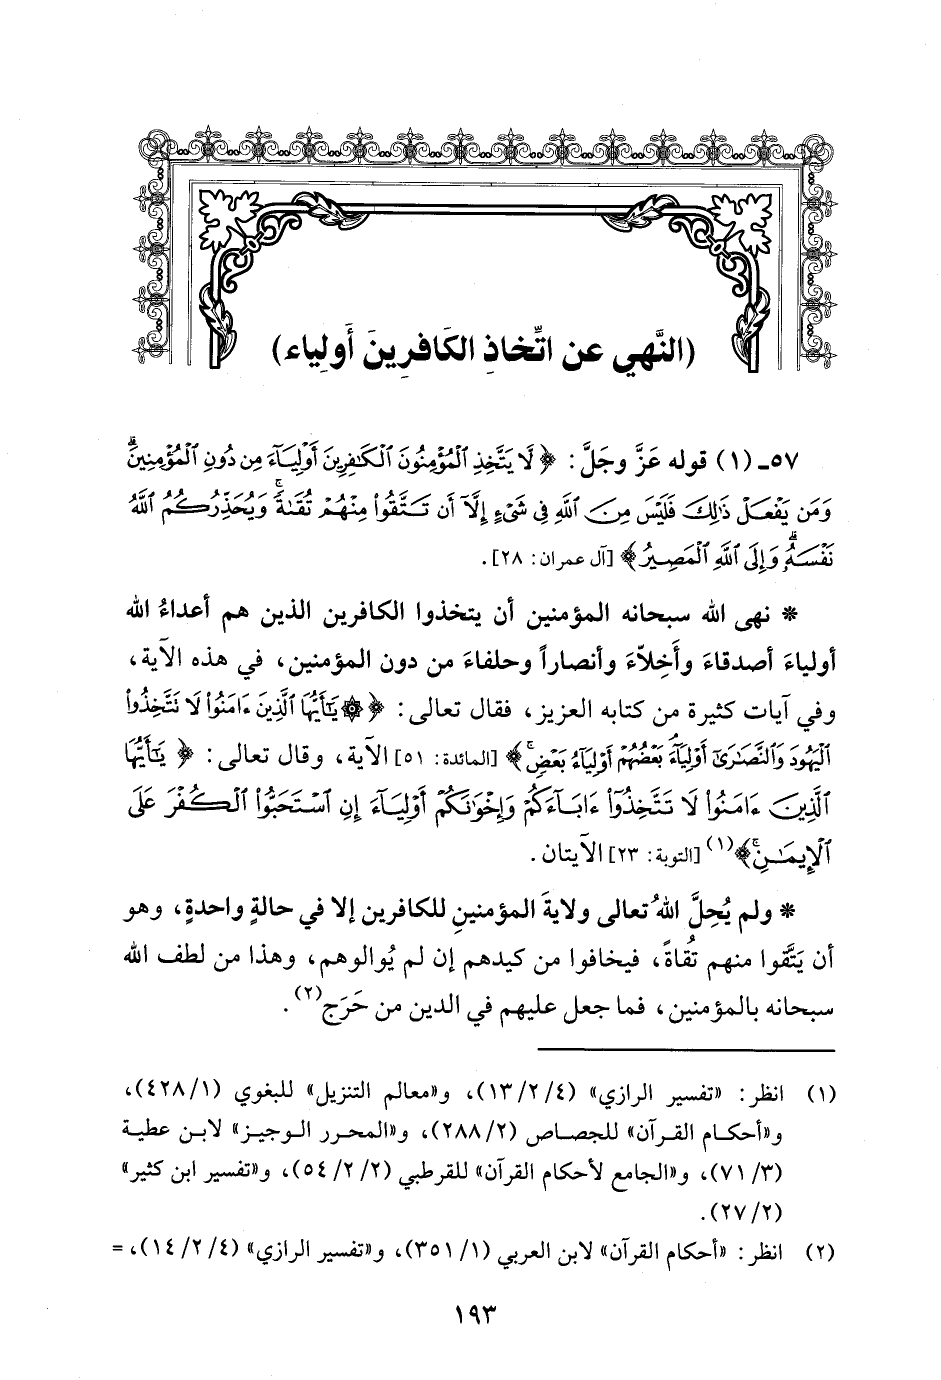 (النَّهي عن اتِّخاذِ الكَافرِينَ أَولِياء)
٥٧ـ (١) قوله عَزَّ وجَلَّ: ﴿لَّا يَتَّخِذِ ٱلْمُؤْمِنُونَ ٱلْكَٰفِرِينَ أَوْلِيَآءَ مِن دُونِ ٱلْمُؤْمِنِينَۖ
وَمَن يَفْعَلْ ذَٰلِكَ فَلَيْسَ مِنَ ٱللَّهِ فِى شَىْءٍ إِلَّآ أَن تَتَّقُوا۟ مِنْهُمْ تُقَىٰةًۗ وَيُحَذِّرُكُمُ ٱللَّهُ
نَفْسَهُۥۗ وَإِلَى ٱللَّهِ ٱلْمَصِيرُ﴾ [آل عمران: ٢٨].
* نهى الله سبحانه المؤمنين أن يتخذوا الكافرين الذين هم أعداءُ الله
أولياءَ أصدقاءَ وأَخِلاّءَ وأنصاراً وحلفاءَ من دون المؤمنين، في هذه الآية،
وفي آيات كثيرة من كتابه العزيز، فقال تعالى: ﴿۞ يَٰٓأَيُّهَا ٱلَّذِينَ ءَامَنُوا۟ لَا تَتَّخِذُوا۟
ٱلْيَهُودَ وَٱلنَّصَٰرَىٰٓ أَوْلِيَآءَۘ بَعْضُهُمْ أَوْلِيَآءُ بَعْضٍۚ﴾ [المائدة: ٥١] الآية، وقال تعالى: ﴿يَٰٓأَيُّهَا
ٱلَّذِينَ ءَامَنُوا۟ لَا تَتَّخِذُوٓا۟ ءَابَآءَكُمْ وَإِخْوَٰنَكُمْ أَوْلِيَآءَ إِنِ ٱسْتَحَبُّوا۟ ٱلْكُفْرَ عَلَى
ٱلْإِيمَٰنِۚ﴾(١) [التوبة: ٢٣] الآيتان.
* ولم يُحِلَّ اللهُ تعالى ولايةَ المؤمنينِ للكافرين إلا في حالةٍ واحدةٍ، وهو
أن يَتَّقوا منهم تُقاةً، فيخافوا من كيدهم إن لم يُوالوهم، وهذا من لطف الله
سبحانه بالمؤمنين، فما جعل عليهم في الدين من حَرَج(٢).
(١) انظر: «تفسير الرازي» (٤/ ٢/ ١٣)، و«معالم التنزيل» للبغوي (١/ ٤٢٨)،
و«أحكام القرآن» للجصاص (٢/ ٢٨٨)، و«المحرر الوجيز» لابن عطية
(٣/ ٧١)، و«الجامع لأحكام القرآن» للقرطبي (٢/ ٢/ ٥٤)، و«تفسير ابن كثير»
(٢/ ٢٧).
(٢) انظر: «أحكام القرآن» لابن العربي (١/ ٣٥١)، و«تفسير الرازي» (٤/ ٢/ ١٤)، =
١٩٣